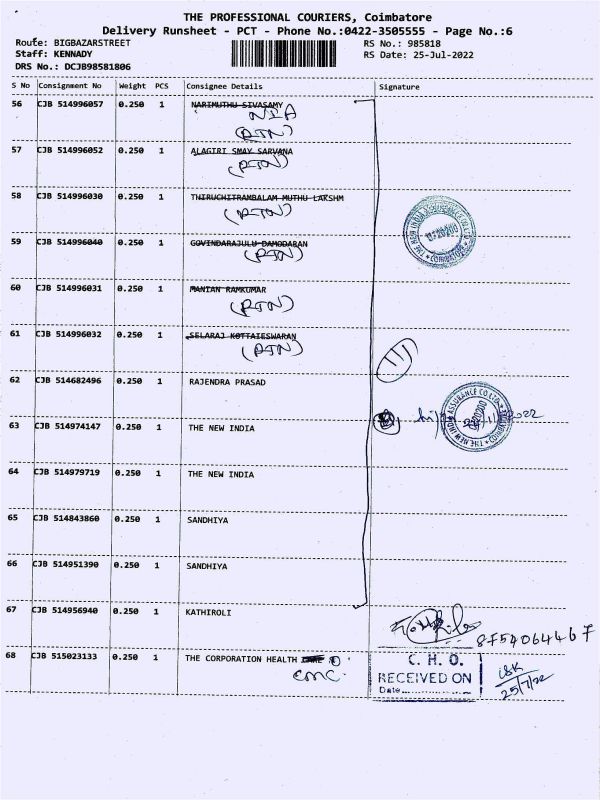 THE PROFESSIONAL COURIERS, Coimbatore
Delivery Runsheet - PCT - Phone No.:0422-3505555 - Page No.:6
Route: BIGBAZARSTREET RS No.: 985818
Staff: KENNADY RS Date: 25-Jul-2022
DRS No.: DCJB98581806
S No Consignment No Weight PCS Consignee Details Signature
56 CJB 514996057 0.250 1 NARIMUTHU SIVASAMY
NIA
(RTN)
57 CJB 514996052 0.250 1 ALAGIRI SMAY SARVANA
(RTN)
58 CJB 514996030 0.250 1 THIRUCHITRAMBALAM MUTHU LAKSHM
(RTN)
59 CJB 514996040 0.250 1 GOVINDARAJULU DAMODARAN
(RTN)
60 CJB 514996031 0.250 1 MANIAN RAMKUMAR
(RTN)
61 CJB 514996032 0.250 1 SELARAJ KOTTAIESWARAN
(RTN)
62 CJB 514682496 0.250 1 RAJENDRA PRASAD
63 CJB 514974147 0.250 1 THE NEW INDIA
64 CJB 514979719 0.250 1 THE NEW INDIA
65 CJB 514843860 0.250 1 SANDHIYA
66 CJB 514951390 0.250 1 SANDHIYA
67 CJB 514956940 0.250 1 KATHIROLI
68 CJB 515023133 0.250 1 THE CORPORATION HEALTH
CMC.
C. H. O.
RECEIVED ON
Date
25/7/22